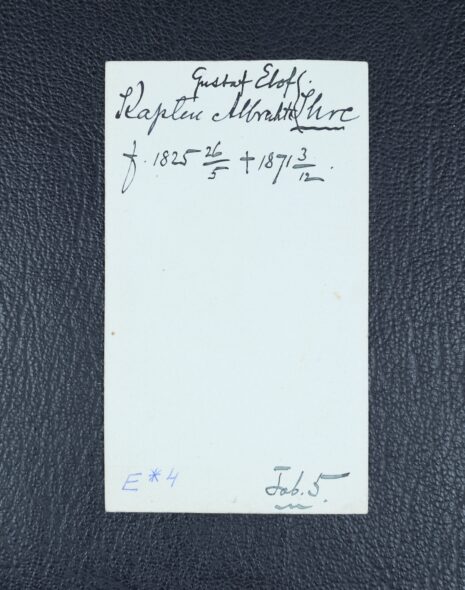 Gustaf Elof
Kapten Albrekt Ihre
f. 1825 26/5 † 1871 3/12.
E*4
Tab. 5.